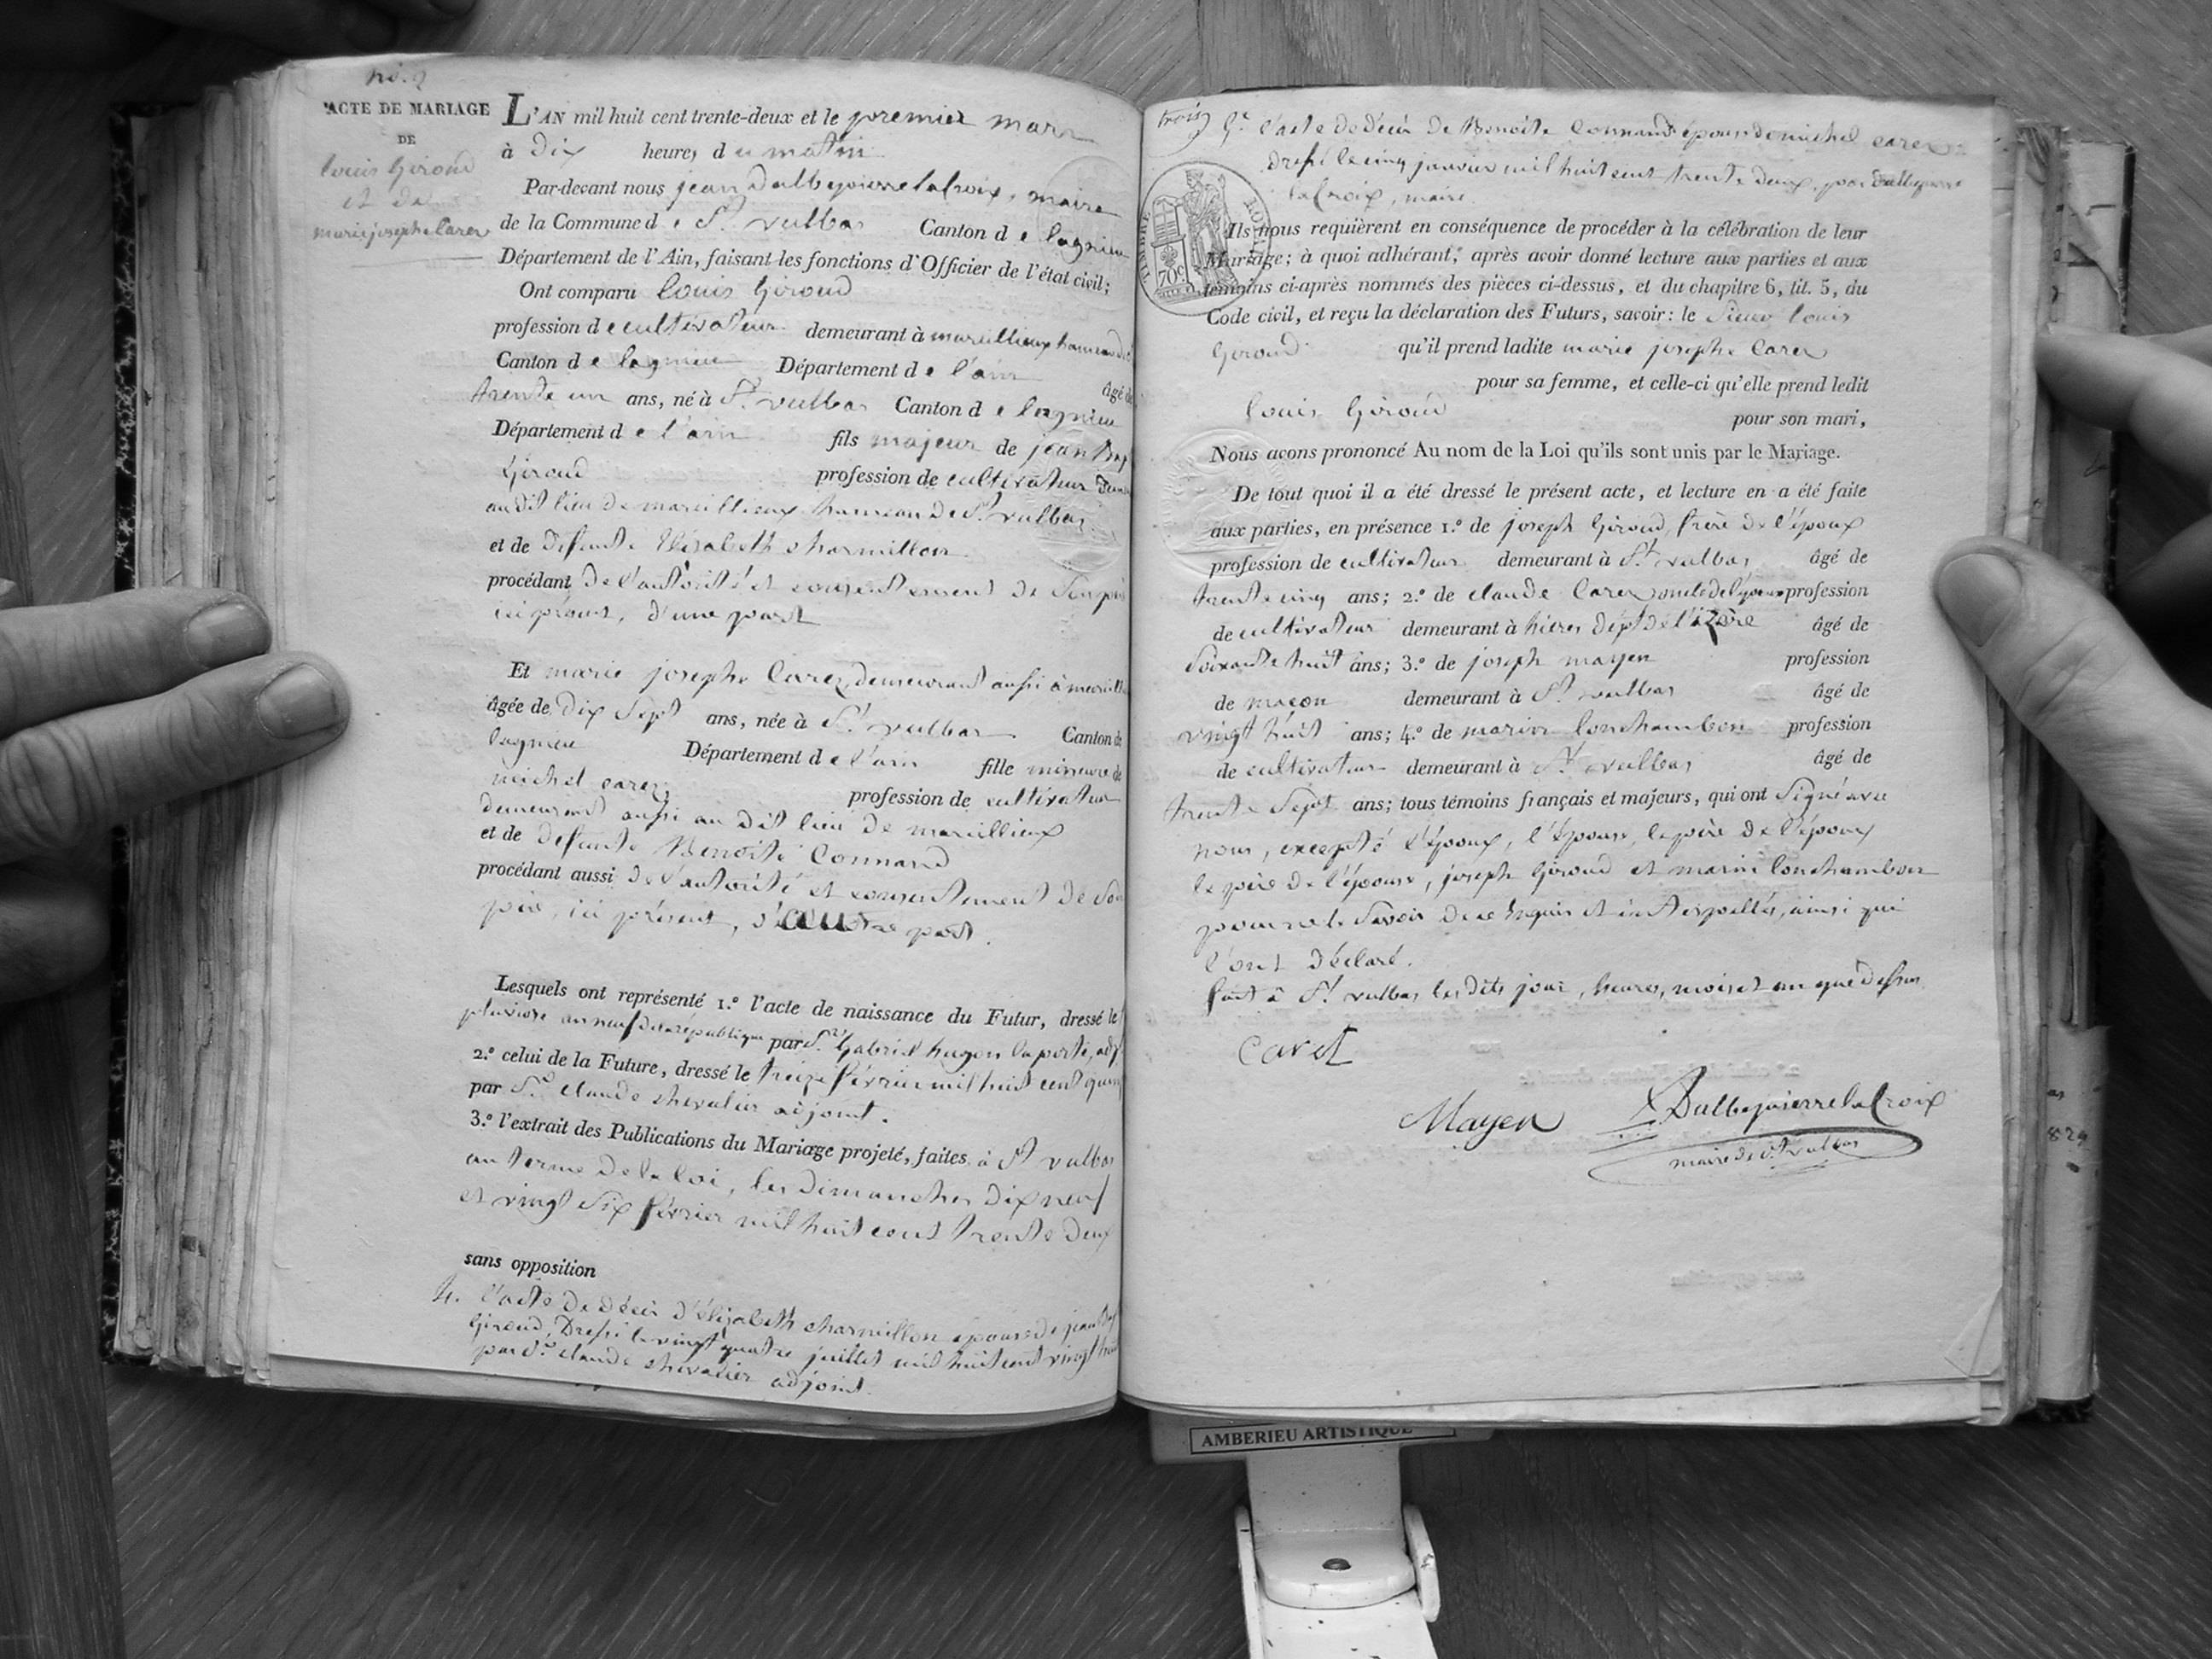 no. 2
ACTE DE MARIAGE
DE
louis Giroud
et de
marie josephe Carer
L'AN mil huit cent trente-deux et le premier mars
à dix heures du matin
Par-devant nous jean dalbepierre lacroix, maire
de la Commune de St. vulbas Canton de lagnieu
Département de l'Ain, faisant les fonctions d'Officier de l'état civil;
Ont comparu louis Giroud
profession de cultivateur demeurant à marcillieux hameau
Canton de lagnieu Département de l'ain âgé de
trente un ans, né à St. vulbas Canton de lagnieu
Département de l'ain fils majeur de jean Bap
Giroud profession de cultivateur
au dit lieu de marcillieux hameau de St. vulbas
et de défunte Elisabeth charmillon
procédant de l'autorité et consentement de son père
ici présent, d'une part
Et marie josephe Carer, demeurant aussi à marcilli
âgée de dix sept ans, née à St. vulbas Canton de
lagnieu Département de l'ain fille mineure de
michel carer profession de cultivateur
demeurant aussi au dit lieu de marcillieux
et de défunte Benoite Connard
procédant aussi de l'autorité et consentement de son
père, ici présent, d'autre part.
Lesquels ont représenté 1.º l'acte de naissance du Futur, dressé le
pluviose an neuf de la république par Sr. Gabriel hugon laporte, adj
2.º celui de la Future, dressé le treize février mil huit cent quin
par Sr. claude chevalier adjoint.
3.º l'extrait des Publications du Mariage projeté, faites à St vulbas
au terme de la loi, les dimanches dix neuf
et vingt six février mil huit cent trente deux
sans opposition
4. l'acte de décès d'élizabeth charmillon épouse de jean Bap
Giroud, Dressé le vingt quatre juillet mil huit cent vingt huit
par Sr. claude chevalier adjoint.
trois
5º. l'acte de décès de Benoite Connard épouse de michel carer
dressé le cinq janvier mil huit cent trente deux, par dalbepierre
lacroix, maire.
TIMBRE ROYAL
70 c
Ils nous requièrent en conséquence de procéder à la célébration de leur
Mariage; à quoi adhérant, après avoir donné lecture aux parties et aux
témoins ci-après nommés des pièces ci-dessus, et du chapitre 6, tit. 5, du
Code civil, et reçu la déclaration des Futurs, savoir: le Sieur louis
Giroud qu'il prend ladite marie josephe Carer
pour sa femme, et celle-ci qu'elle prend ledit
louis Giroud pour son mari,
Nous avons prononcé Au nom de la Loi qu'ils sont unis par le Mariage.
De tout quoi il a été dressé le présent acte, et lecture en a été faite
aux parties, en présence 1.º de joseph Giroud, frère de l'époux
profession de cultivateur demeurant à St. vulbas âgé de
trente cinq ans; 2.º de claude Carer oncle de l'épouse profession
de cultivateur demeurant à hières dépt de l'izère âgé de
soixante huit ans; 3.º de joseph mayen profession
de maçon demeurant à St. vulbas âgé de
vingt huit ans; 4.º de marin lonchambon profession
de cultivateur demeurant à St. vulbas âgé de
trente sept ans; tous témoins français et majeurs, qui ont signé avec
nous, excepté l'époux, l'épouse, le père de l'époux
le père de l'épouse, joseph Giroud et marin lonchambon
pour ne le savoir de ce requis et interpellés, ainsi qui
l'ont déclaré.
fait à St. vulbas les dits jour, heures, mois et an que dessus.
Caret
Mayen Dalbepierre lacroix
maire de St. vulbas
829
AMBERIEU ARTISTIQUE